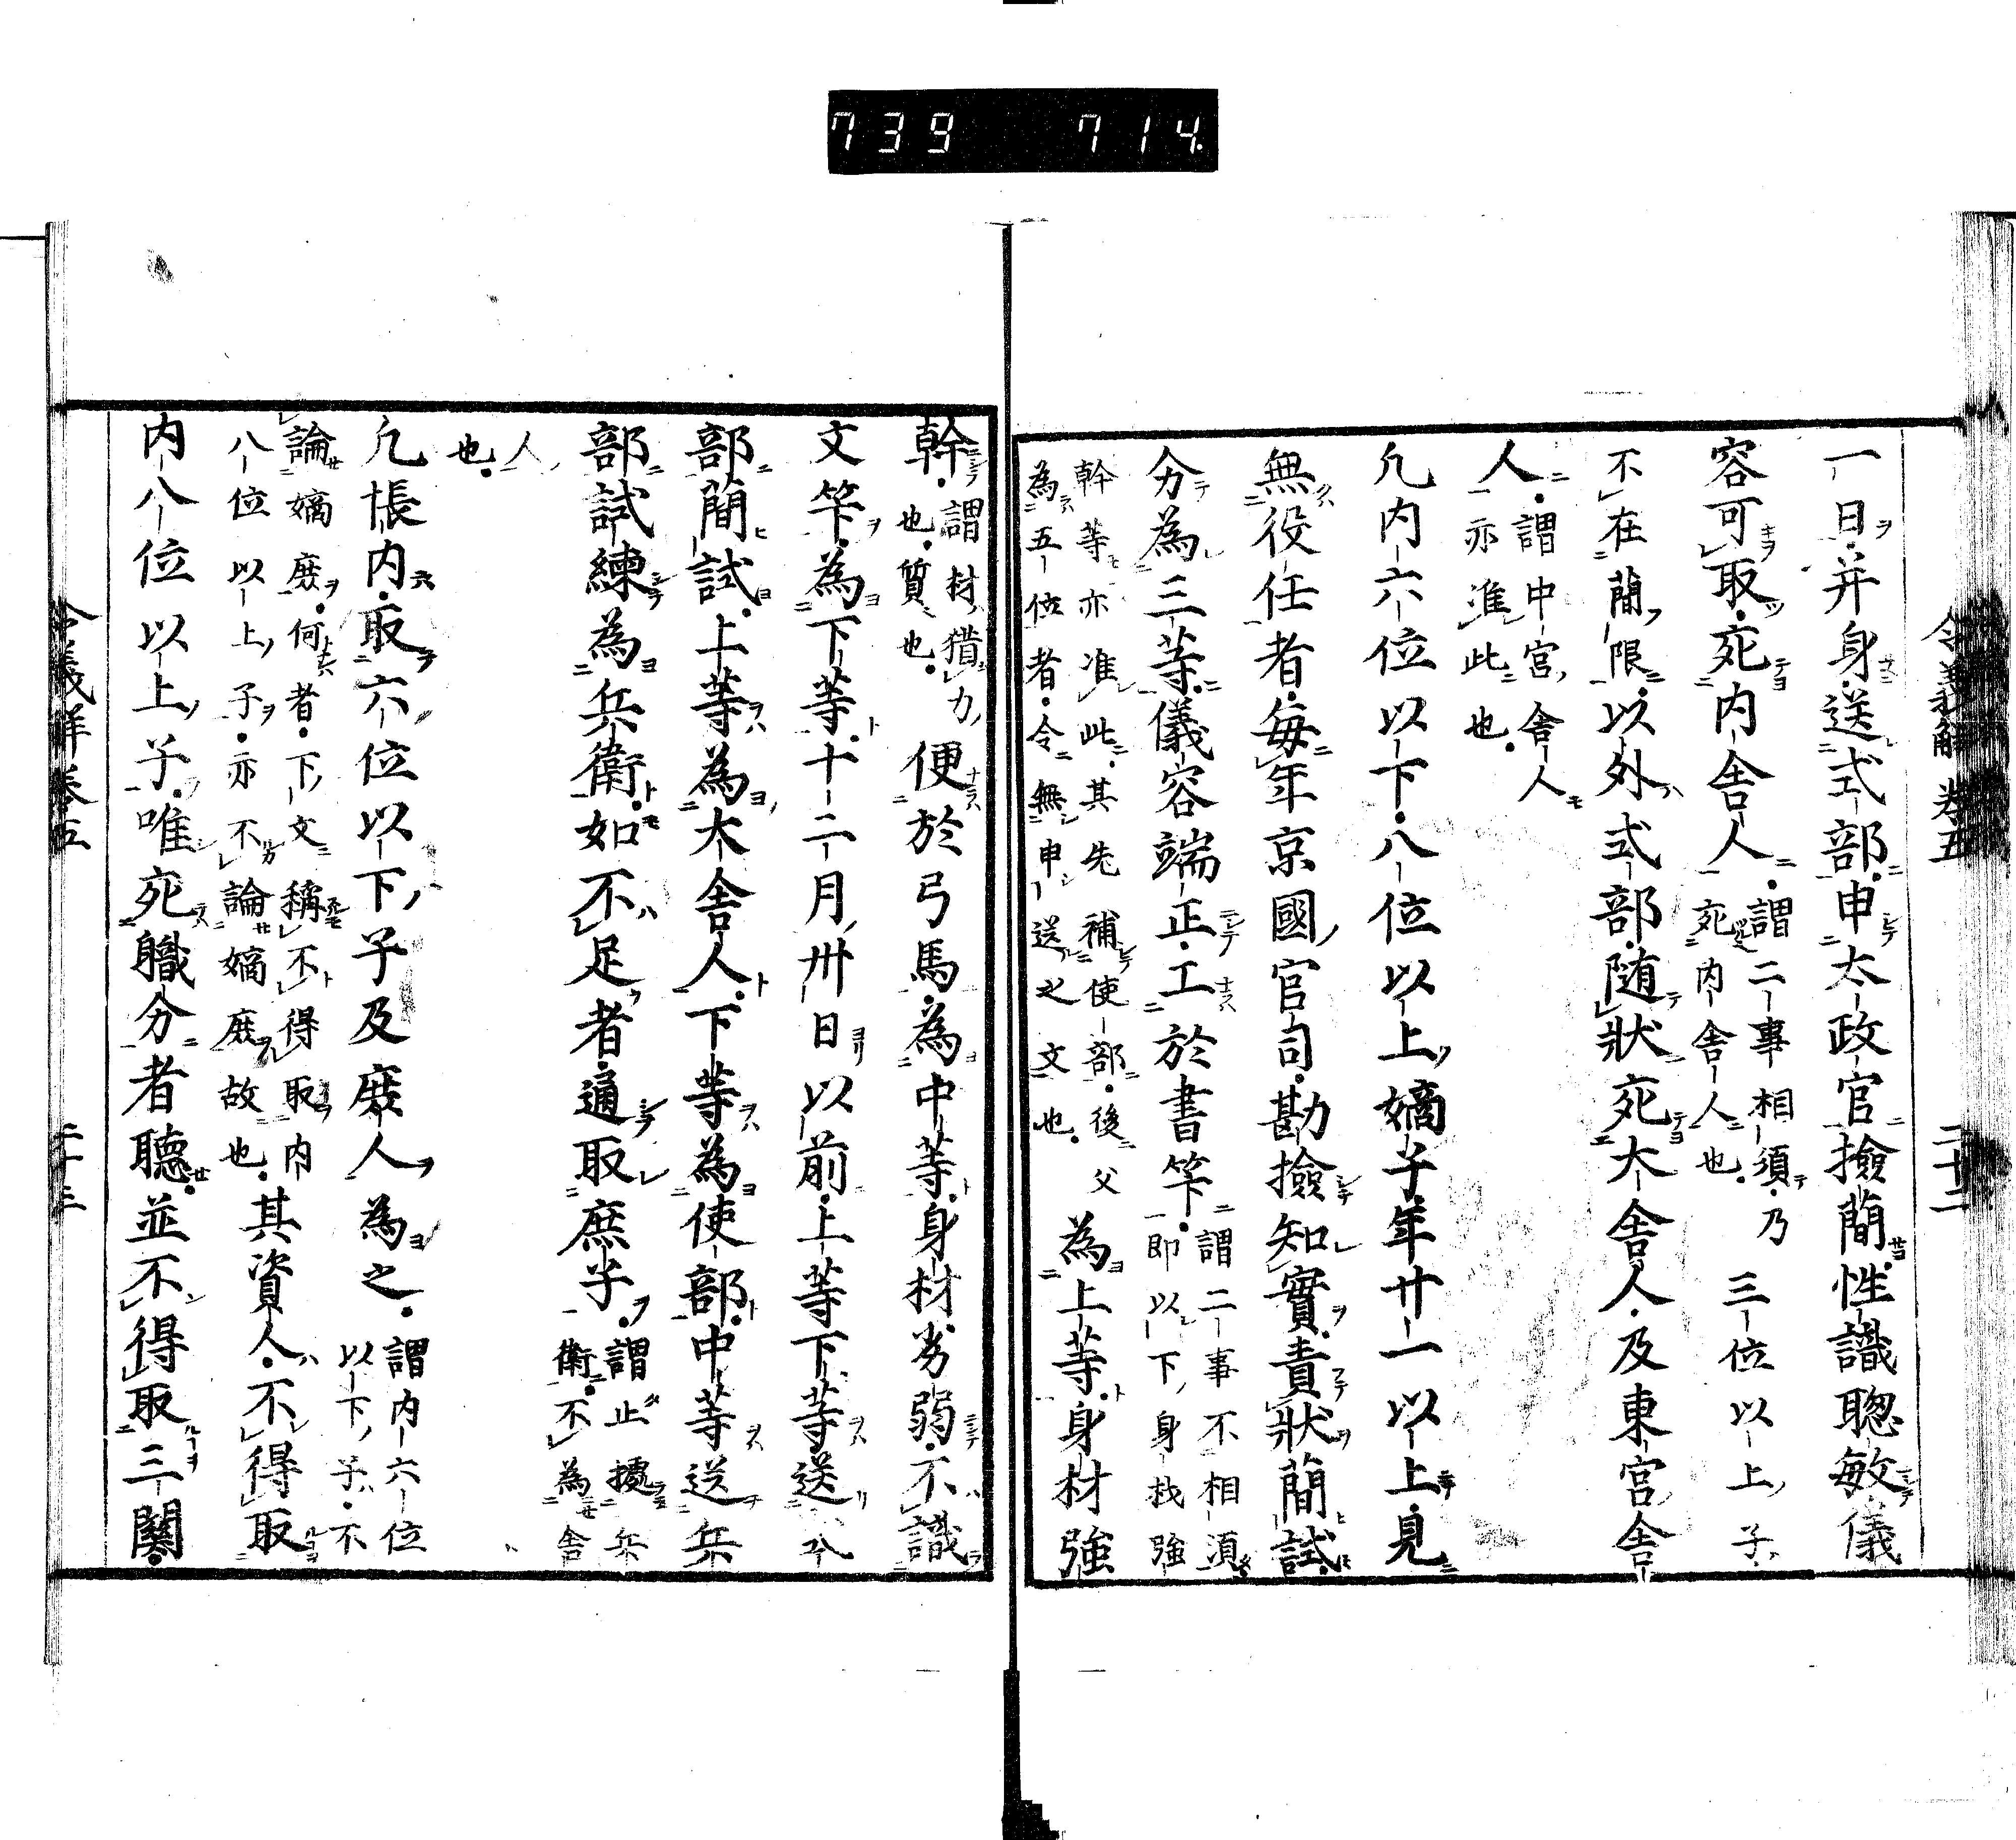 739 714
令義解 卷五 二十二
一日并身送式部申太政官撿簡性識聰敏儀
容可取宛内舍人謂二事相須乃宛内舍人也三位以上子
不在簡限以外式部随狀宛大舍人及東宮舍
人謂中宮舍人亦准此也
凢内六位以下八位以上嫡子年廿一以上見
無役任者毎年京國官司勘撿知實責狀簡試
分為三等儀容端正工於書竿謂二事不相須即以下身材強
幹等亦准此其先補使部後父為五位者令無申送之文也為上等身材強
幹謂材猶力也質也便於弓馬為中等身材劣弱不識
文竿為下等十二月卅日以前上等下等送式
部簡試上等為大舍人下等為使部中等送兵
部試練為兵衛如不足者通取庶子謂止擬兵衛不為舍
人也
凢帳内取六位以下子及庶人為之謂内六位以下子不
論嫡庶何者下文稱不得取内八位以上子亦不論嫡庶故也其資人不得取
内八位以上子唯宛職分者聴並不得取三關
令義解卷五 二十三